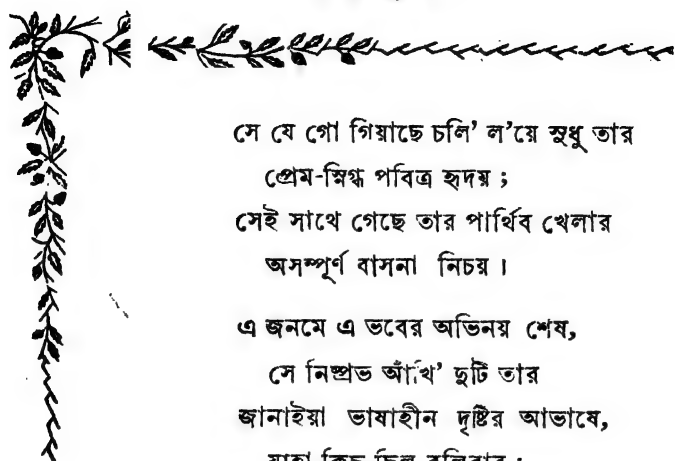 সে যে গো গিয়াছে চলি' ল'য়ে সুধু তার
প্রেম-স্নিগ্ধ পবিত্র হৃদয় ;
সেই সাথে গেছে তার পার্থিব খেলার
অসম্পূর্ণ বাসনা নিচয় ।
এ জনমে এ ভবের অভিনয় শেষ,
সে নিষ্প্রভ আঁখি' দুটি তার
জানাইয়া ভাষাহীন দৃষ্টির আভাষে,
যাহা কিছু ছিল বলিবার ;